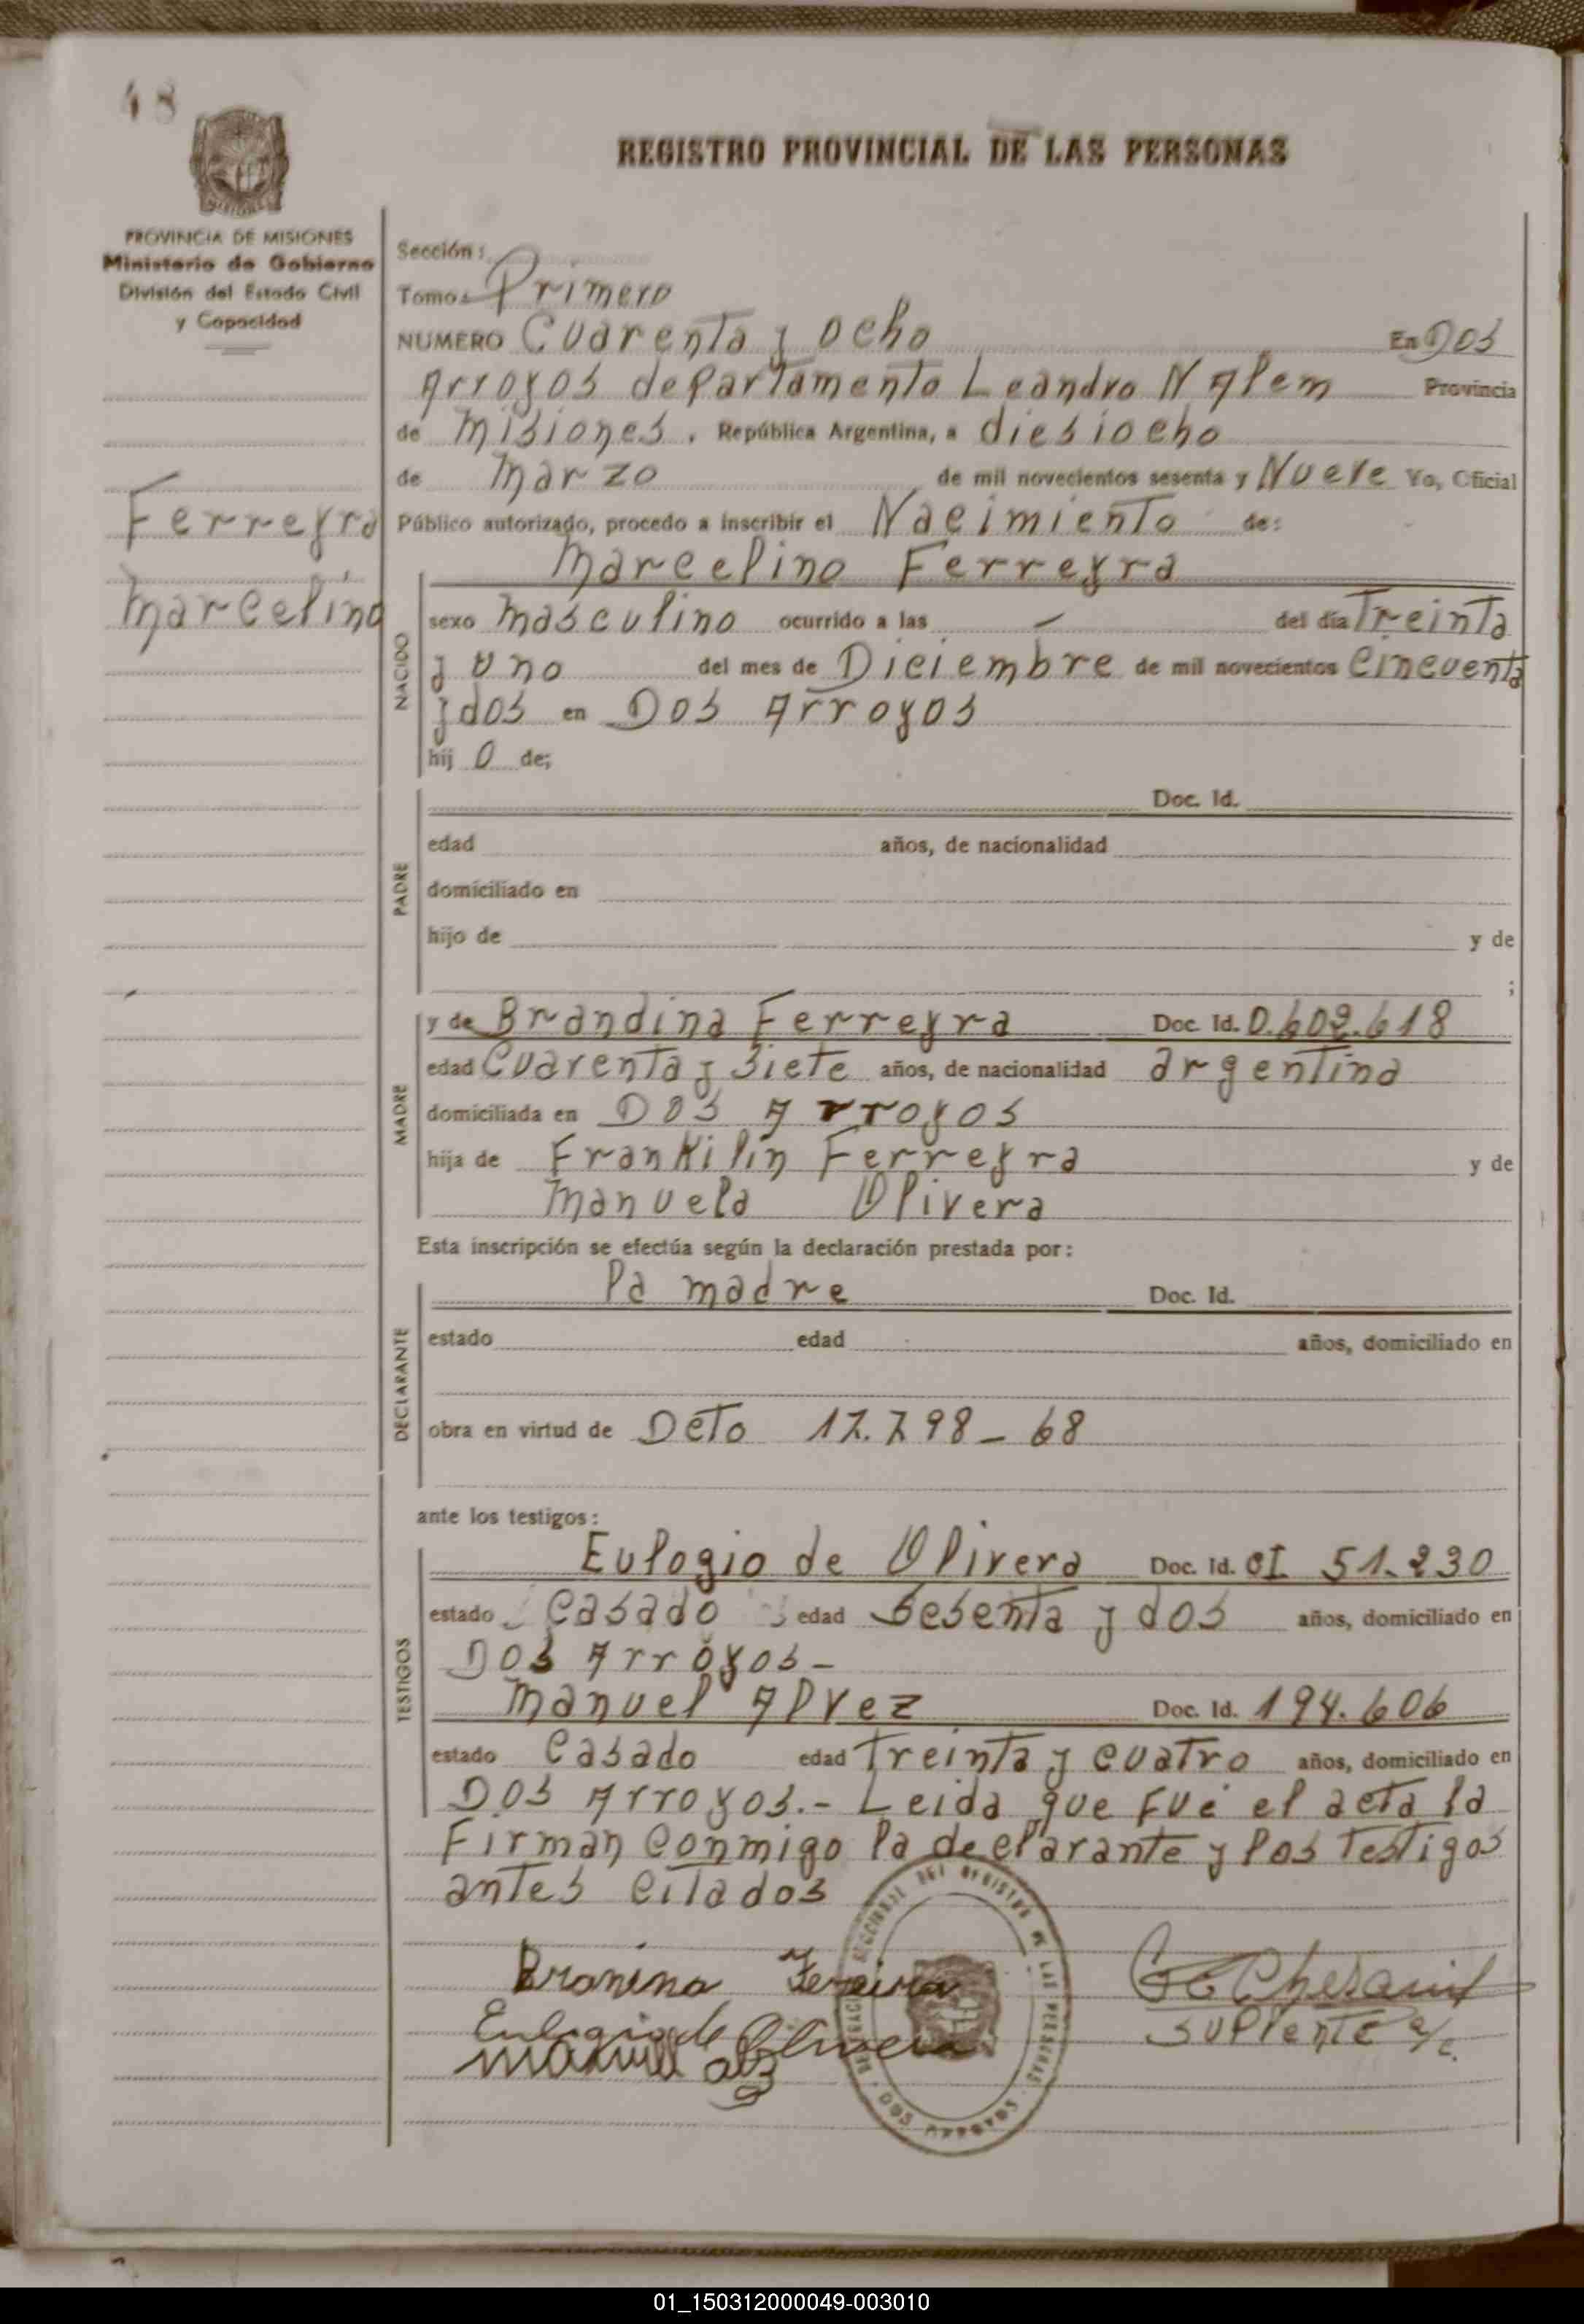 48
REGISTRO PROVINCIAL DE LAS PERSONAS
PROVINCIA DE MISIONES
Ministerio de Gobierno
División del Estado Civil
y Capacidad
Ferreyra
Marcelino
Sección:
Tomo: Primero
NUMERO Cuarenta y ocho En Dos
Arroyos departamento Leandro N Alem Provincia
de Misiones. República Argentina, a diesiocho
de Marzo de mil novecientos sesenta y Nueve Yo, Oficial
Público autorizado, procedo a inscribir el Nacimiento de:
Marcelino Ferreyra
NACIDO
sexo Masculino ocurrido a las — del día Treinta
y uno del mes de Diciembre de mil novecientos cincuenta
y dos en Dos Arroyos
hij o de;
Doc. Id.
PADRE
edad años, de nacionalidad
domiciliado en
hijo de y de
;
MADRE
y de Brandina Ferreyra Doc. Id. 0.602.618
edad Cuarenta y Siete años, de nacionalidad argentina
domiciliada en Dos Arroyos
hija de Frankilin Ferreyra y de
Manuela Olivera
Esta inscripción se efectúa según la declaración prestada por:
DECLARANTE
la madre Doc. Id.
estado edad años, domiciliado en
obra en virtud de Deto 17.798-68
ante los testigos:
TESTIGOS
Eulogio de Olivera Doc. Id. CI 51.230
estado Casado edad Sesenta y dos años, domiciliado en
Dos Arroyos-
Manuel Alvez Doc. Id. 194.606
estado Casado edad Treinta y cuatro años, domiciliado en
Dos Arroyos.- Leida que fué el acta la
Firman conmigo la declarante y los Testigos
antes citados
Branina Fereira
Eulogio de Olivera
Manuel
Suplente a/c.
REGISTRO DE LAS PERSONAS
DOS ARROYOS
01_150312000049-003010